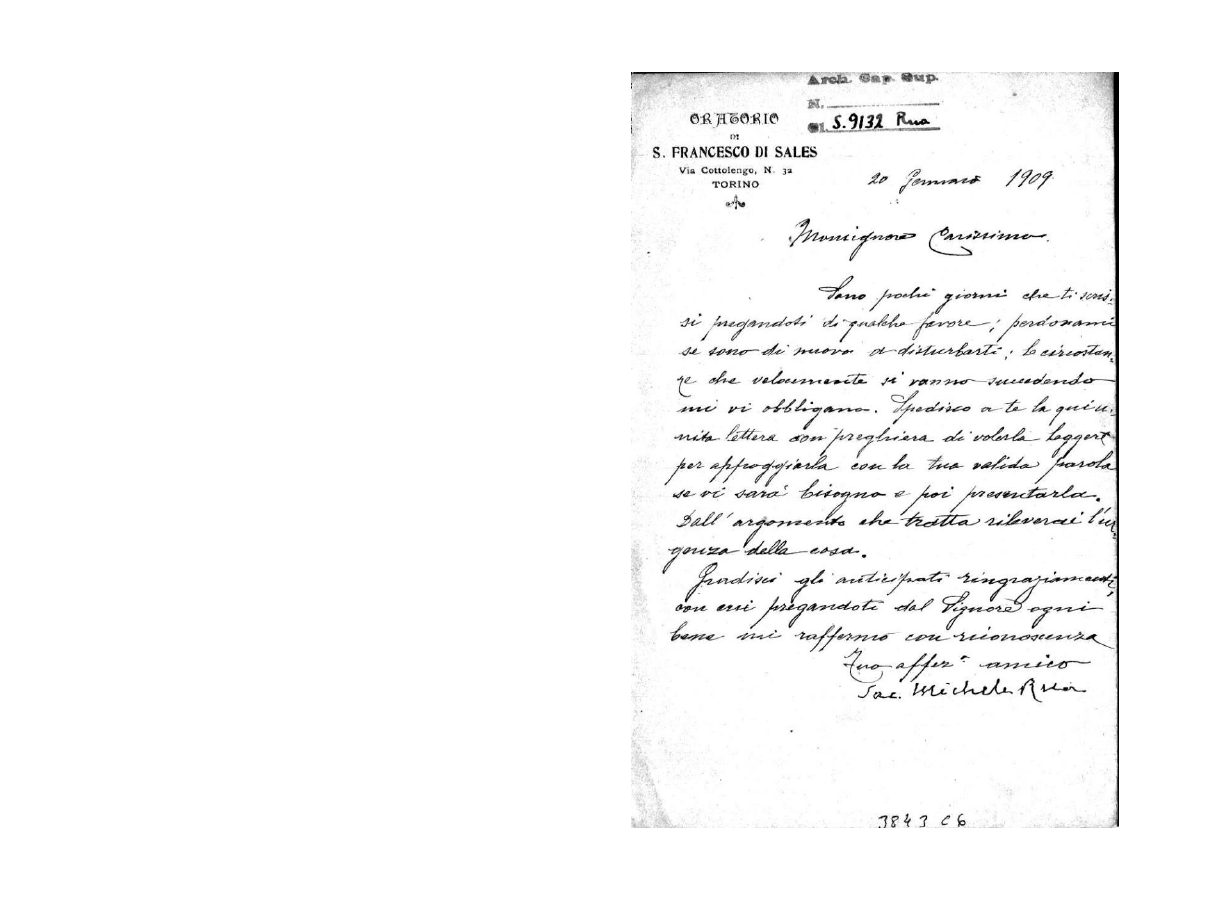 Arch. Cap. Sup.
N.
Cl. S.9132 Rua
ORATORIO
DI
S. FRANCESCO DI SALES
Via Cottolengo, N. 32
TORINO
20 Gennaio 1909.
Monsignore Carissimo.
Sono pochi giorni che ti scris-
si pregandoti di qualche favore; perdonami
se sono di nuovo a disturbarti; le circostan-
ze che velocemente si vanno succedendo
mi vi obbligano. Spedisco a te la qui u-
nita lettera con preghiera di volerla leggere
per appoggiarla con la tua valida parola
se vi sarà bisogno e poi presentarla.
Dall'argomento che tratta rileverai l'ur-
genza della cosa.
Gradisci gli anticipati ringraziamenti,
con cui pregandoti dal Signore ogni
bene mi raffermo con riconoscenza
Tuo affez.º amico
Sac. Michele Rua
3843 C6